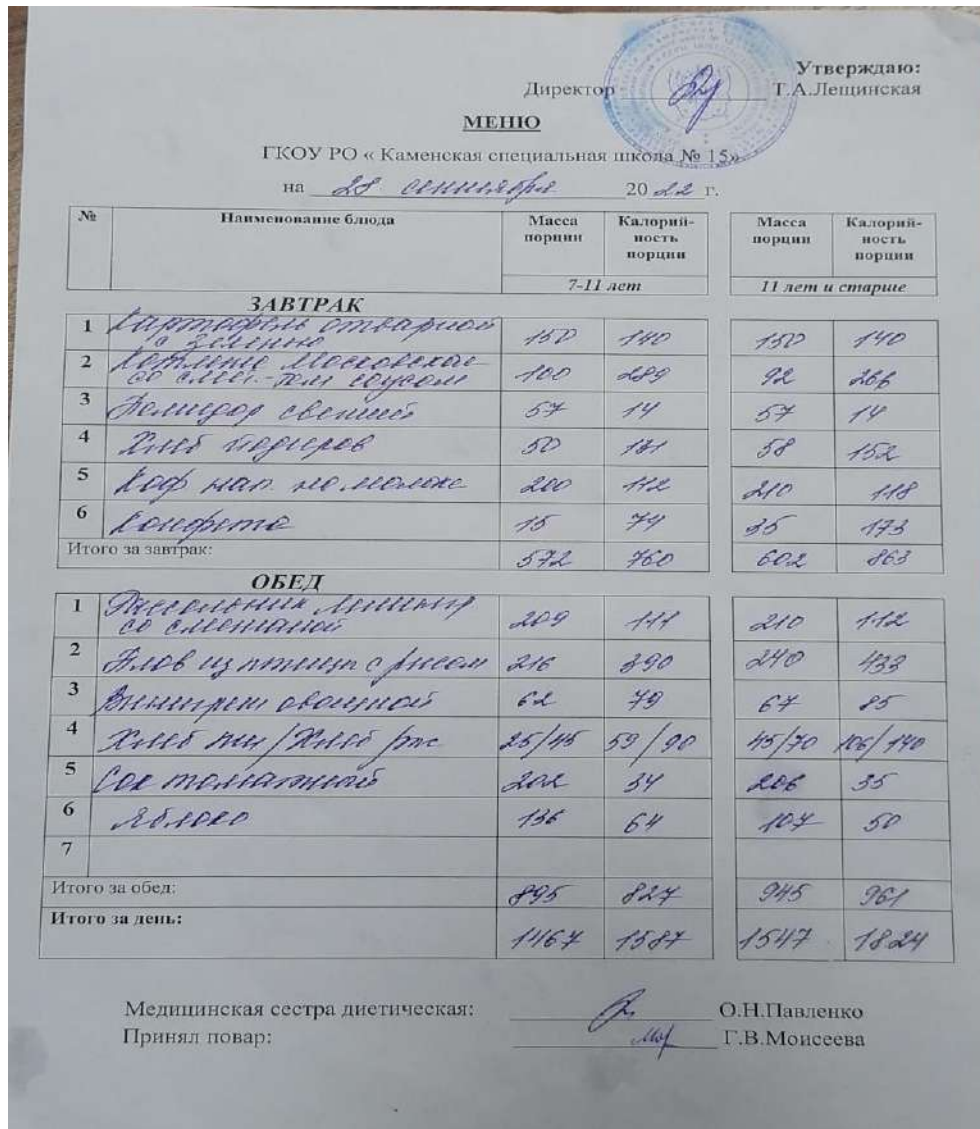 Утверждаю:
Директор Т.А.Лещинская
МЕНЮ
ГКОУ РО « Каменская специальная школа № 15»
на 28 сентября 2022 г.
№ Наименование блюда Масса порции Калорий-ность порции Масса порции Калорий-ность порции
7-11 лет 11 лет и старше
ЗАВТРАК
1 Картофель отварной с зеленью 150 140 150 140
2 Котлета Московская со смет.-том соусом 100 289 92 266
3 Помидор свежий 57 14 57 14
4 Хлеб йодиров 50 131 58 152
5 Коф нап. на молоке 200 112 210 118
6 Конфета 15 74 35 173
Итого за завтрак: 572 760 602 863
ОБЕД
1 Рассольник Ленингр со сметаной 209 111 210 112
2 Плов из птицы с рисом 216 390 240 433
3 Винегрет овощной 62 79 67 85
4 Хлеб пш/Хлеб рж 25/45 59/90 45/70 106/140
5 Сок томатный 202 34 206 35
6 Яблоко 136 64 107 50
7
Итого за обед: 895 827 945 961
Итого за день: 1467 1587 1547 1824
Медицинская сестра диетическая: О.Н.Павленко
Принял повар: Г.В.Моисеева